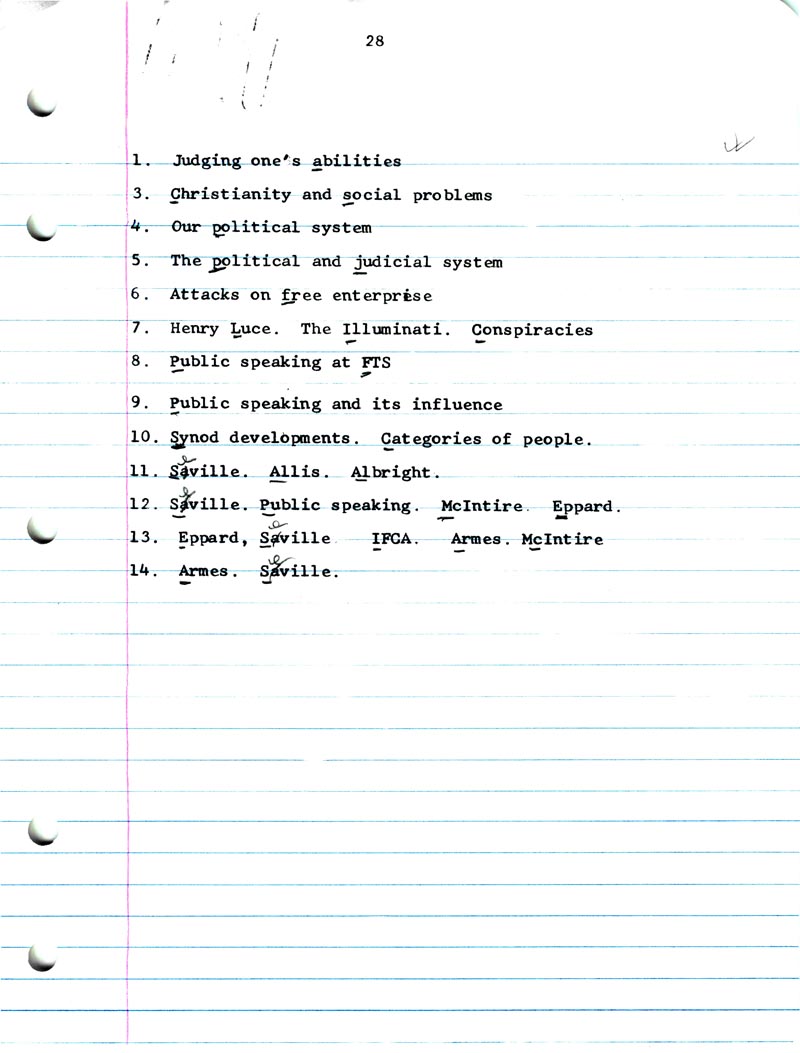 28
1. Judging one's abilities
3. Christianity and social problems
4. Our political system
5. The political and judicial system
6. Attacks on free enterprise
7. Henry Luce. The Illuminati. Conspiracies
8. Public speaking at FTS
9. Public speaking and its influence
10. Synod developments. Categories of people.
11. Seville. Allis. Albright.
12. Seville. Public speaking. McIntire. Eppard.
13. Eppard, Seville IFCA. Armes. McIntire
14. Armes. Seville.